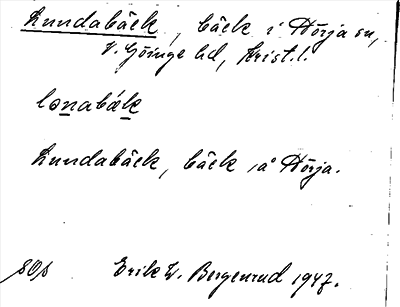 Lundabäck, bäck i Hörja sn,
V. Göinge hd, Krist. l.
lonabäk
Lundabäck, bäck, i å Hörja.
Erik W. Bergenrud 1947.